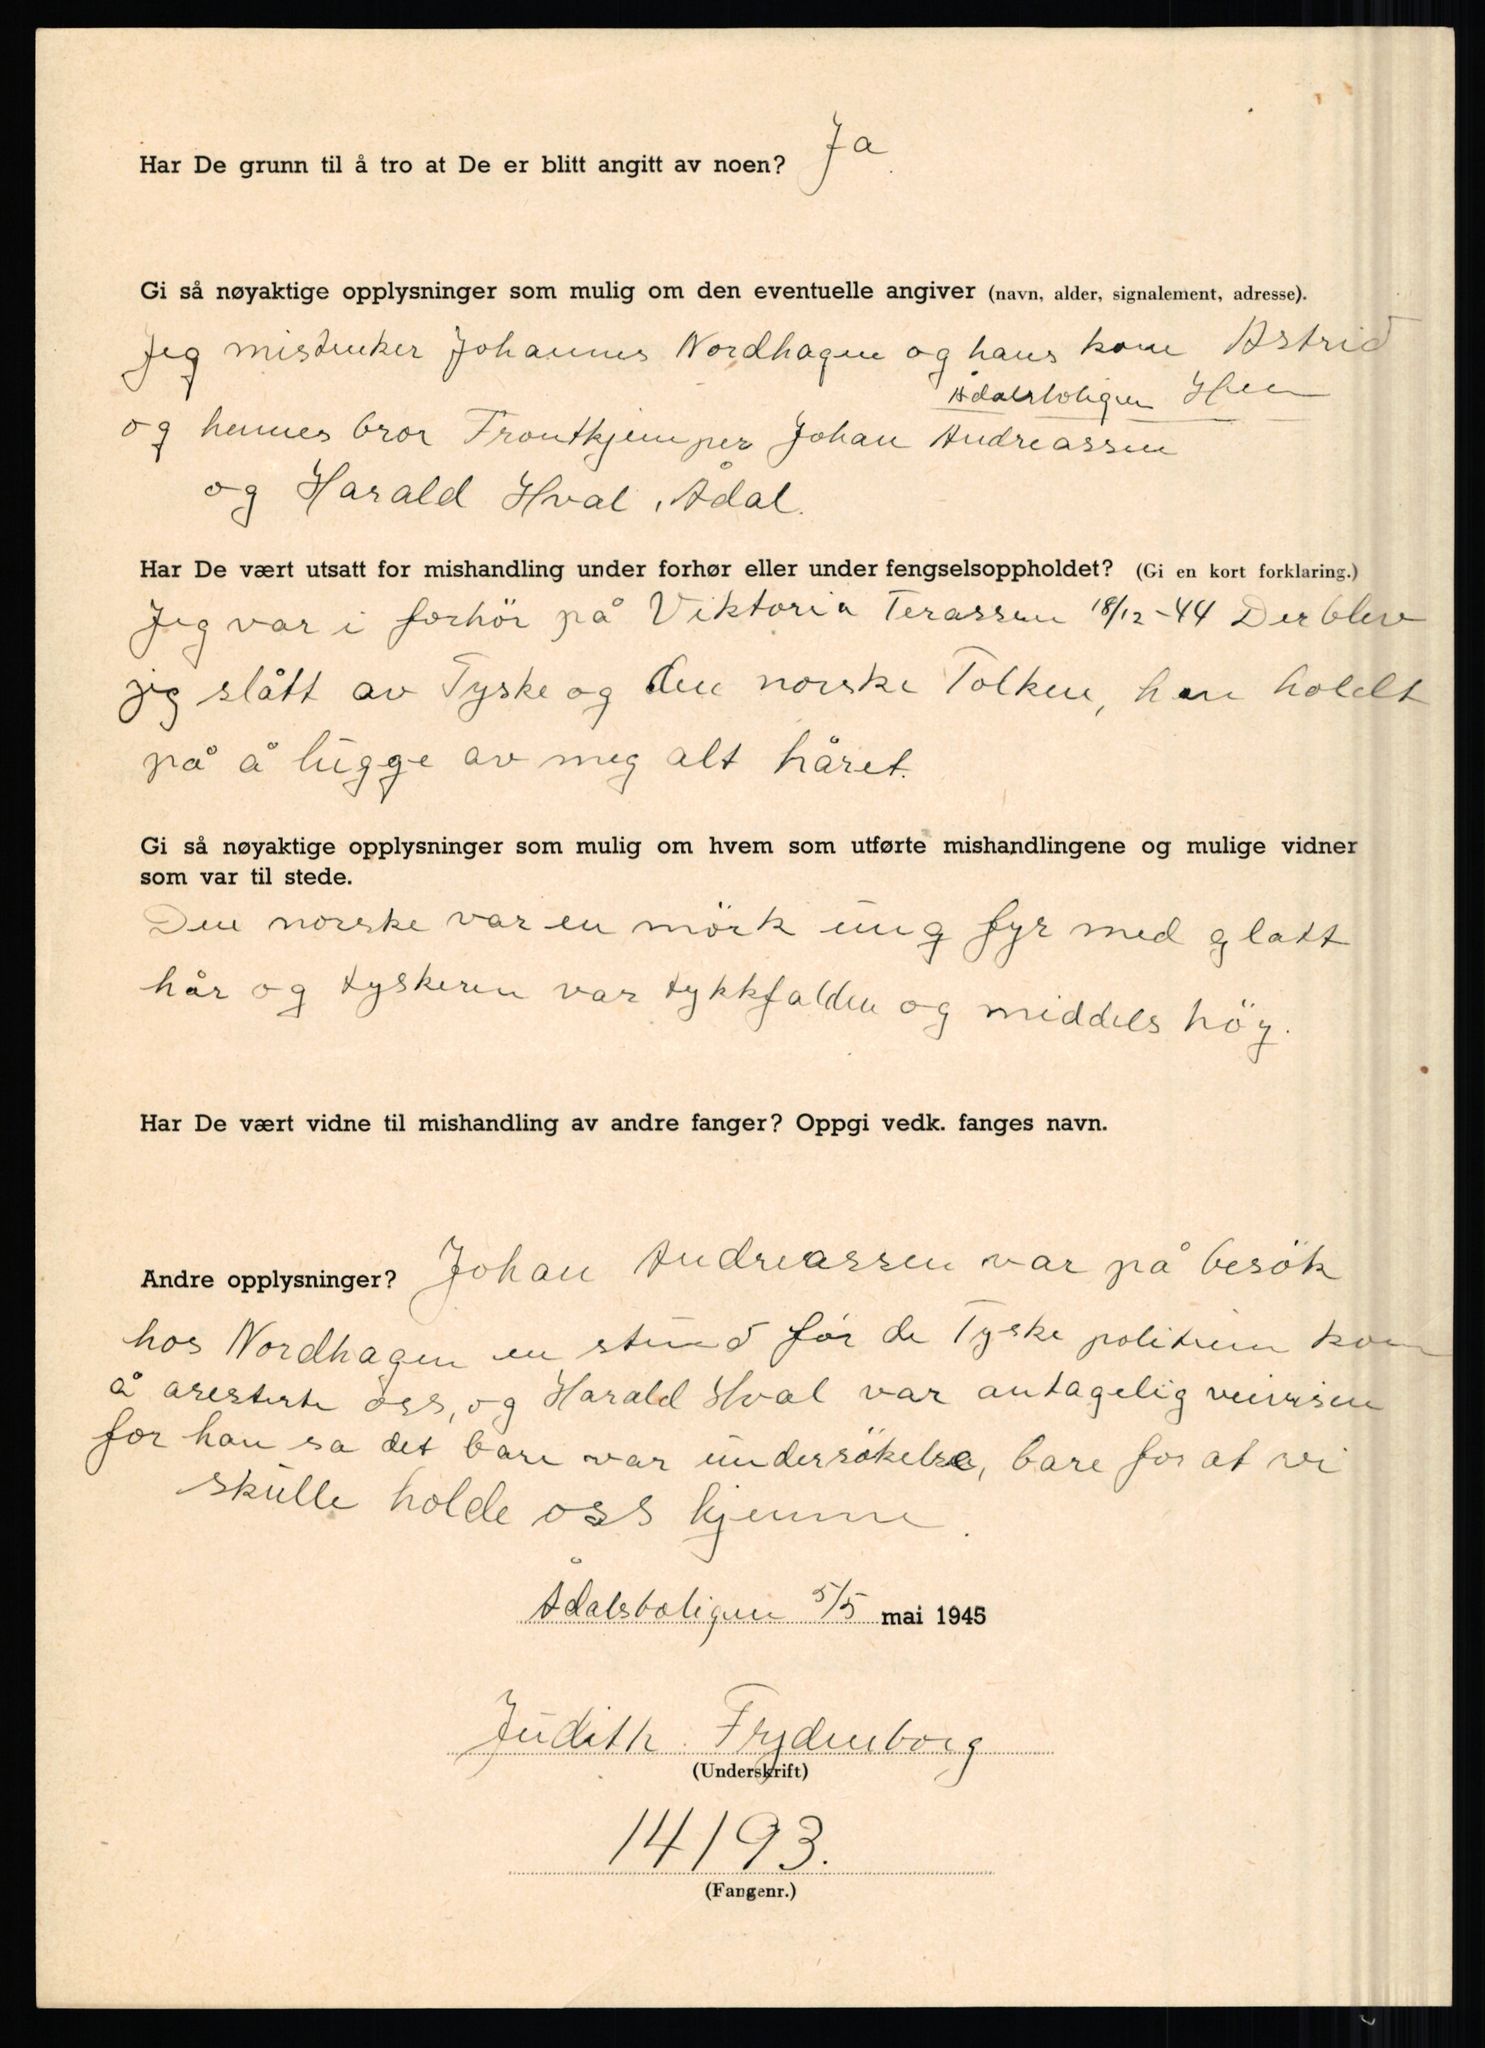 Har De grunn til å tro at De er blitt angitt av noen? Ja.
Gi så nøyaktige opplysninger som mulig om den eventuelle angiver (navn, alder, signalement, adresse).
Jeg mistenker Johannes Nordhagen og hans kone Astrid
Ådalsboligen Hen
og hennes bror Frontkjemper Johan Andreassen
og Harald Hval, Ådal.
Har De vært utsatt for mishandling under forhør eller under fengselsoppholdet? (Gi en kort forklaring.)
Jeg var i forhör på Viktoria Terassen 18/12-44 Der blev
jeg slått av Tyske og den norske Tolken, han holdt
på å lugge av meg alt håret.
Gi så nøyaktige opplysninger som mulig om hvem som utførte mishandlingene og mulige vidner
som var til stede.
Den norske var en mörk ung fyr med glatt
hår og tyskeren var tykkfalden og middels höy.
Har De vært vidne til mishandling av andre fanger? Oppgi vedk. fanges navn.
Andre opplysninger? Johan Andreassen var på besök
hos Nordhagen en stund før de Tyske politien kom
å aresterte oss, og Harald Hval var antagelig veiviseren
for han sa det bare var undersökelse, bare for at vi
skulle holde oss hjemme.
Ådalsboligen 5/5 mai 1945
Judith Frydenborg
(Underskrift)
14193.
(Fangenr.)